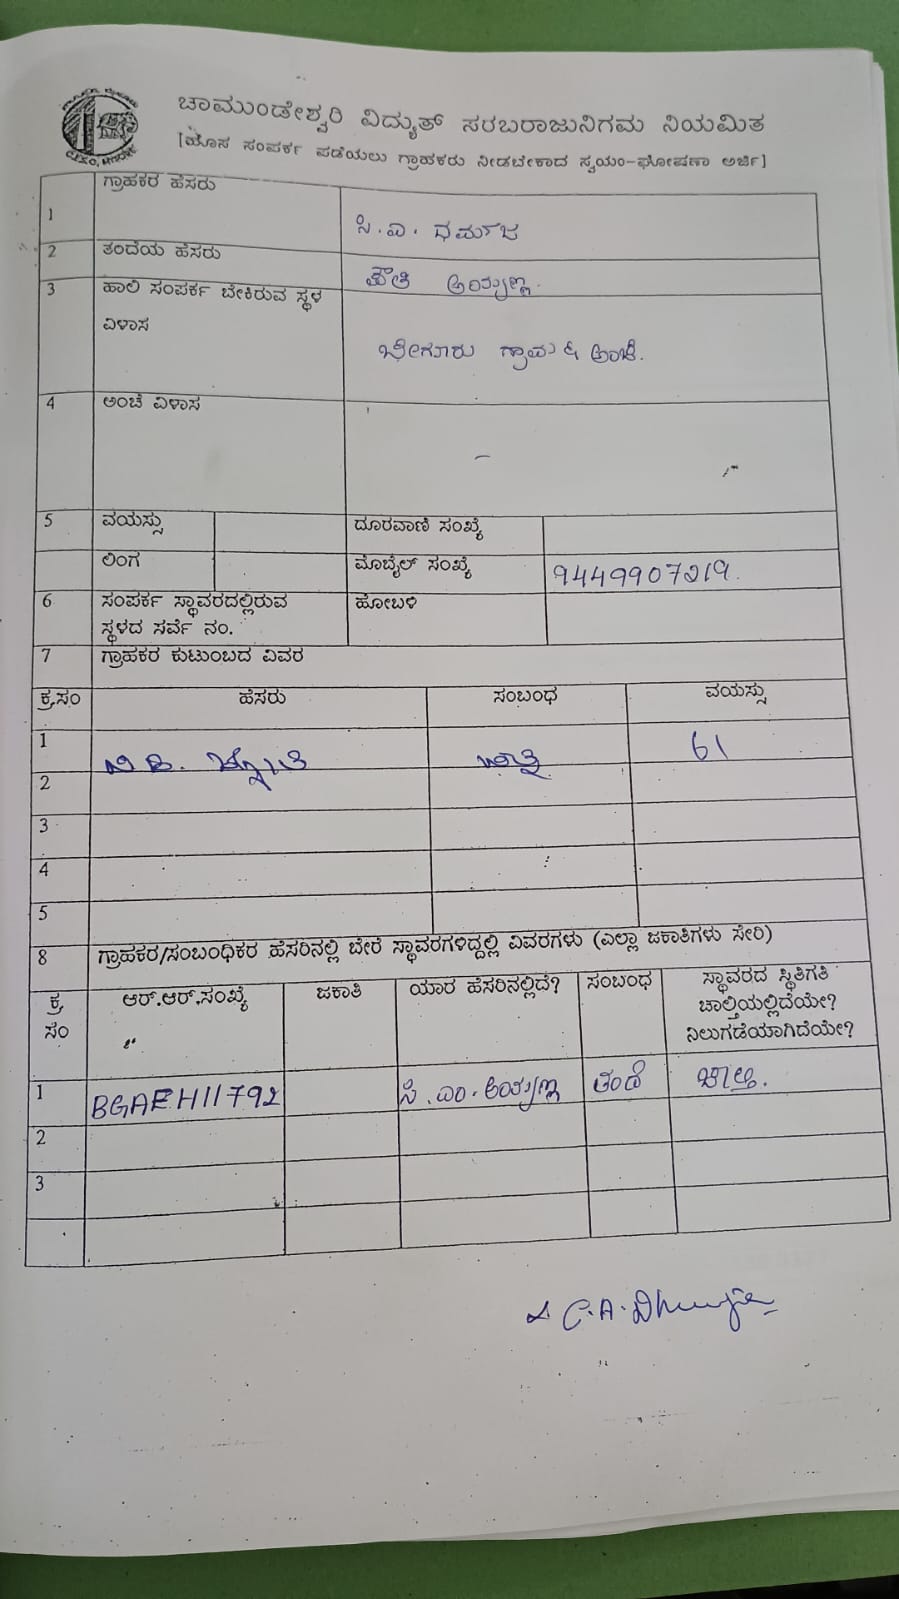 ಚಾಮುಂಡೇಶ್ವರಿ ವಿದ್ಯುತ್ ಸರಬರಾಜುನಿಗಮ ನಿಯಮಿತ
[ಹೊಸ ಸಂಪರ್ಕ ಪಡೆಯಲು ಗ್ರಾಹಕರು ನೀಡಬೇಕಾದ ಸ್ವಯಂ-ಘೋಷಣಾ ಅರ್ಜಿ]
1 ಗ್ರಾಹಕರ ಹೆಸರು ಸಿ.ಎ. ಧರ್ಮಜ
2 ತಂದೆಯ ಹೆಸರು ಅಯ್ಯಣ್ಣ
3 ಹಾಲಿ ಸಂಪರ್ಕ ಬೇಕಿರುವ ಸ್ಥಳ
ವಿಳಾಸ ಬೇಗೂರು ಗ್ರಾಮ & ಅಂಚೆ.
4 ಅಂಚೆ ವಿಳಾಸ –
5 ವಯಸ್ಸು ದೂರವಾಣಿ ಸಂಖ್ಯೆ
ಲಿಂಗ ಮೊಬೈಲ್ ಸಂಖ್ಯೆ 9449907219.
6 ಸಂಪರ್ಕ ಸ್ಥಾವರದಲ್ಲಿರುವ ಹೋಬಳಿ
ಸ್ಥಳದ ಸರ್ವೆ ನಂ.
7 ಗ್ರಾಹಕರ ಕುಟುಂಬದ ವಿವರ
ಕ್ರ.ಸಂ ಹೆಸರು ಸಂಬಂಧ ವಯಸ್ಸು
1 ಜ್ಯೋತಿ ಪತ್ನಿ 61
2
3
4
5
8 ಗ್ರಾಹಕರ/ಸಂಬಂಧಿಕರ ಹೆಸರಿನಲ್ಲಿ ಬೇರೆ ಸ್ಥಾವರಗಳಿದ್ದಲ್ಲಿ ವಿವರಗಳು (ಎಲ್ಲಾ ಜಕಾತಿಗಳು ಸೇರಿ)
ಕ್ರ. ಆರ್.ಆರ್.ಸಂಖ್ಯೆ ಜಕಾತಿ ಯಾರ ಹೆಸರಿನಲ್ಲಿದೆ? ಸಂಬಂಧ ಸ್ಥಾವರದ ಸ್ಥಿತಿಗತಿ
ಸಂ ಚಾಲ್ತಿಯಲ್ಲಿದೆಯೇ?
ನಿಲುಗಡೆಯಾಗಿದೆಯೇ?
1 BGAEH11792 ಸಿ.ಎಂ.ಅಯ್ಯಣ್ಣ ತಂದೆ ಚಾಲ್ತಿ.
2
3
C.A.